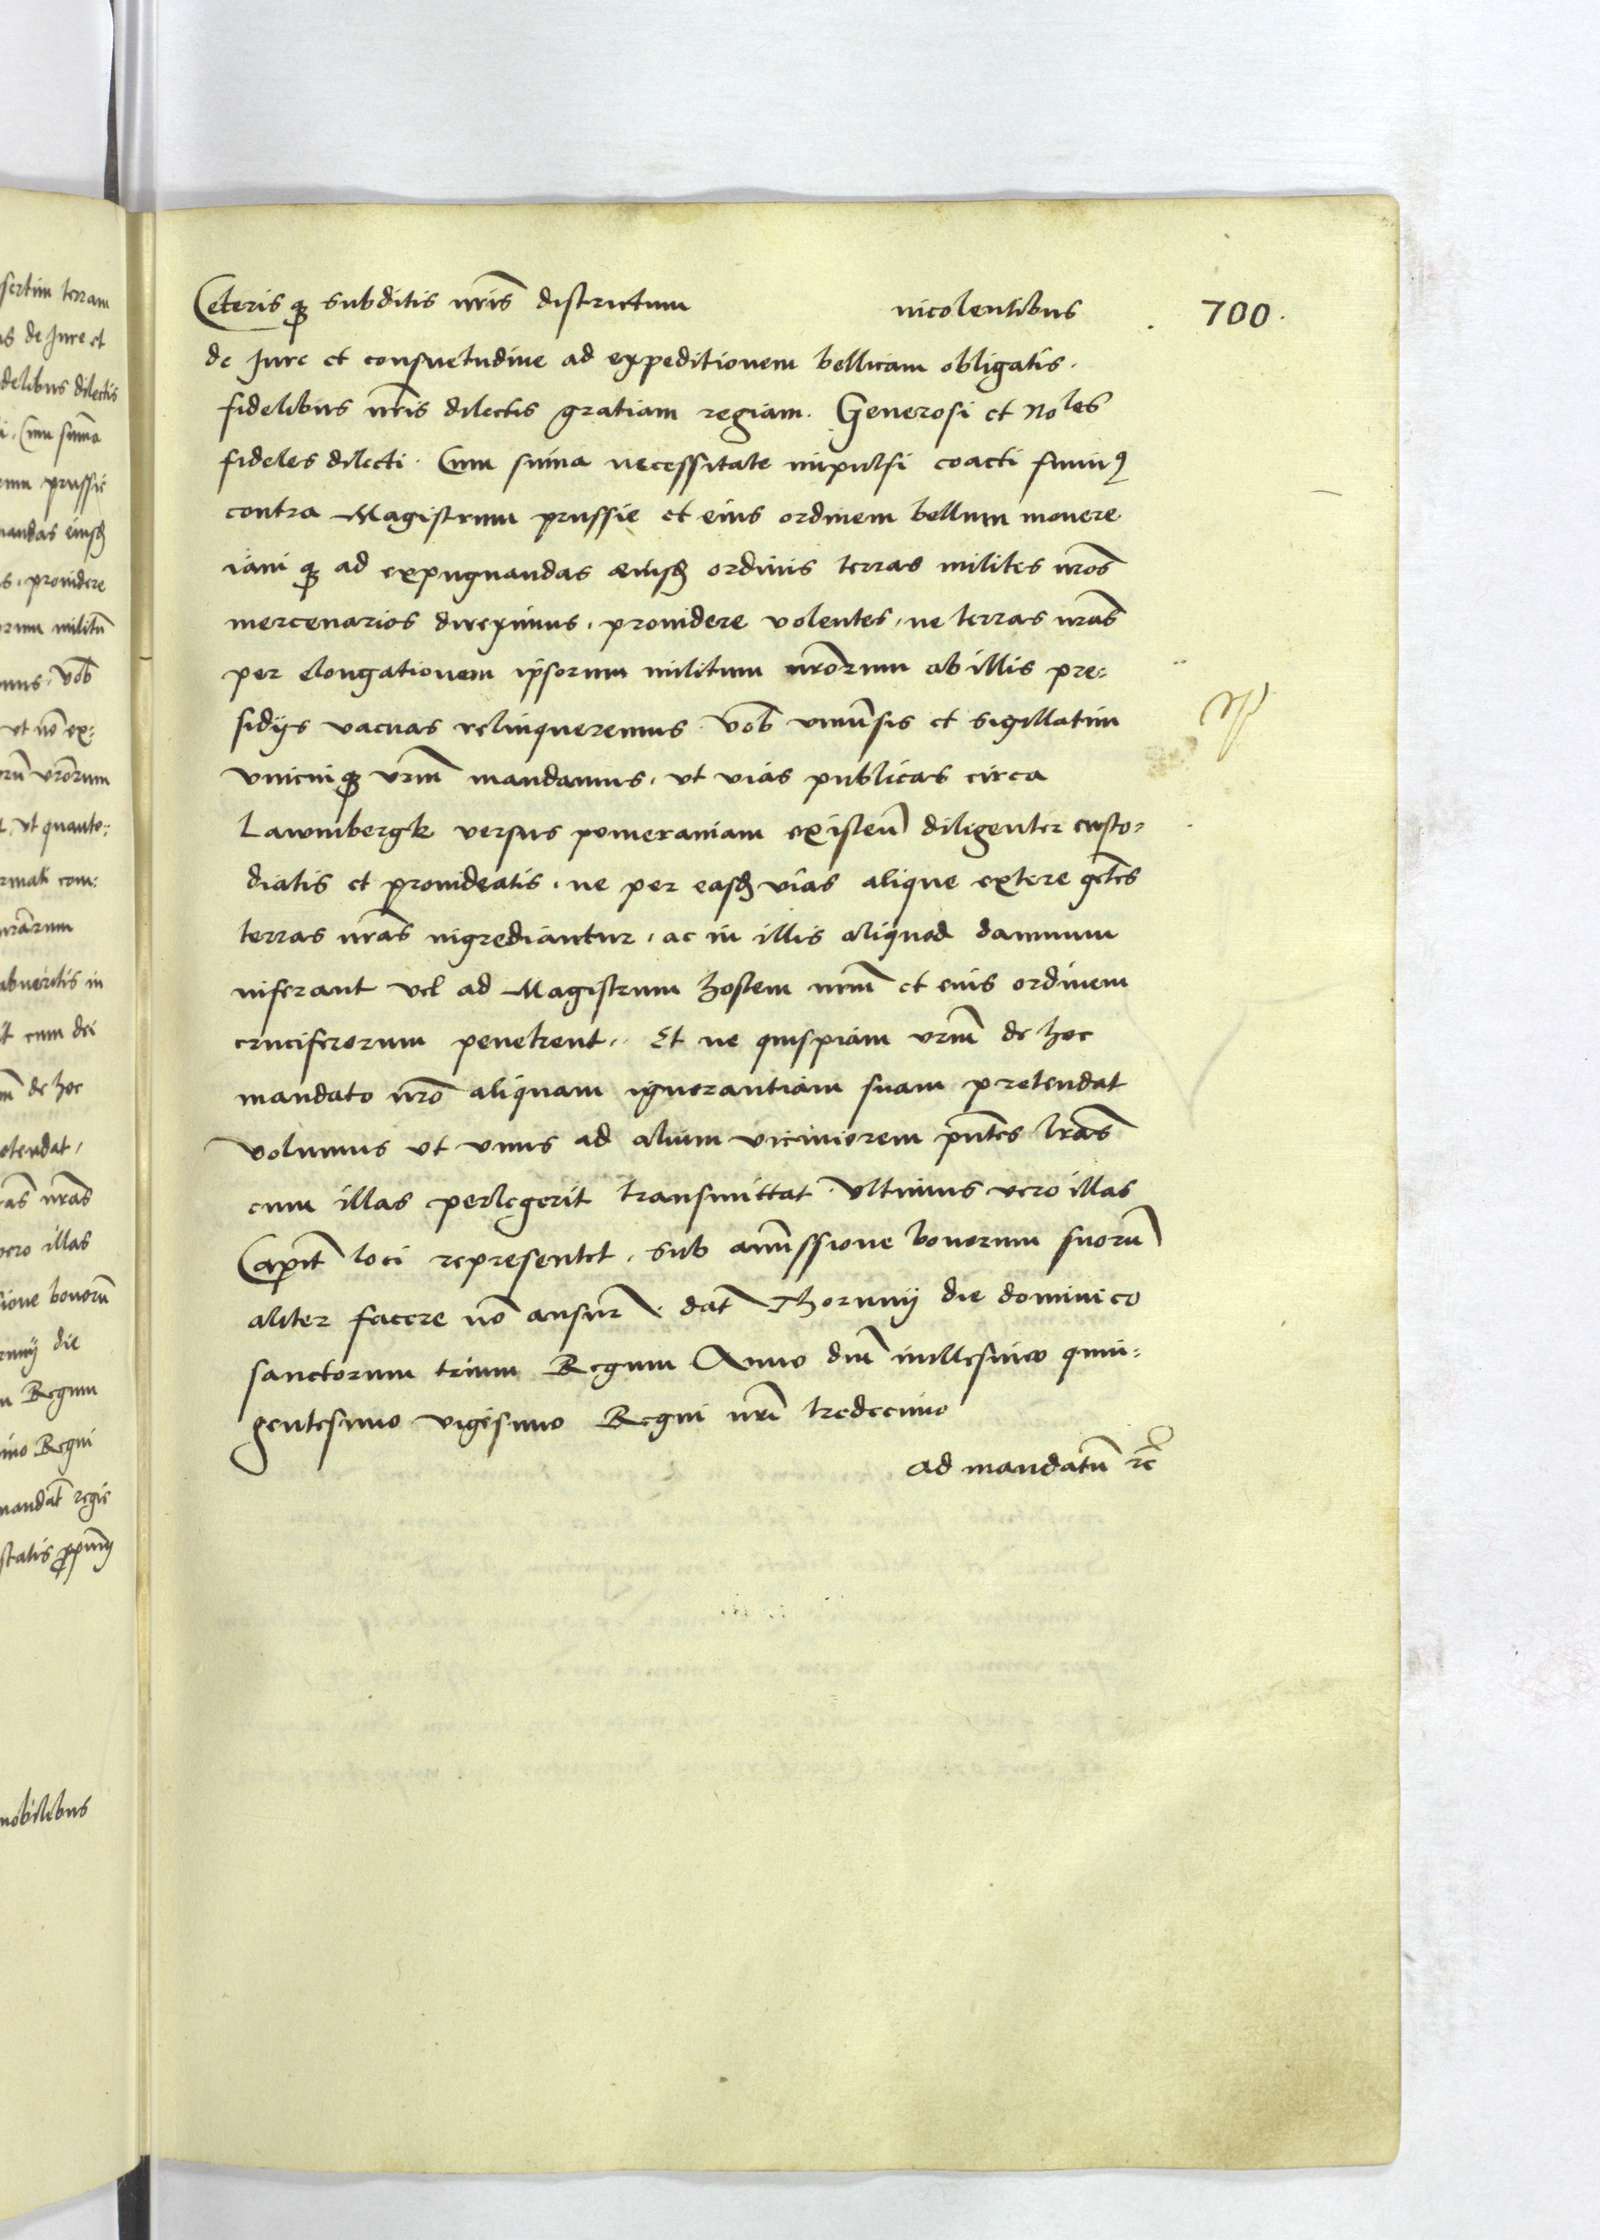 Ceteris q₃ subditis nr̄is districtum incolentibus
700.
de Jure et consuetudine ad expeditionem bellicam obligatis.
fidelibus nr̄is dilectis gratiam regiam. Generosi et Noles
fideles dilecti. Cum sum̄a necessitate impulsi coacti sumus
contra Magistrum prussie et eius ordinem bellum mouere
iam q₃ ad expugnandas eiusd ordinis terras milites nr̄os
mercenarios direximus, prouidere volentes, ne terras nr̄as
per elongationem ip̄sorum militum nr̄orum ab illis pre:
sidijs vacuas relinqueremus vob̄ vniūsis et sigillatim
vnicuiq₃ vr̄m mandamus, vt vias publicas circa
Lawmbergk versus pomeraniam existeñ diligenter custo:
diatis et prouideatis, ne per easd vias alique extere gētes
terras nr̄as ingrediantur, ac in illis aliquod damnum
inferant vel ad Magistrum hostem nr̄m et eius ordinem
cruciferorum penetrent. Et ne quispiam vr̄m de hoc
mandato nr̄o aliquam ignorantiam suam pretendat
volumus vt vnus ad alium viciniorem p̄ntes lr̄as
cum illas perlegerit transmittat. Vltimus vero illas
Capit̄ loci representet, sub amissione bonorum suorū
aliter facere nō ansur̄. dat̄ Thorunij die dominico
sanctorum trium Regum Anno dn̄i millesimo quin:
gentesimo vigesimo Regni nr̄i tredecimo
ad mandatū rc̄